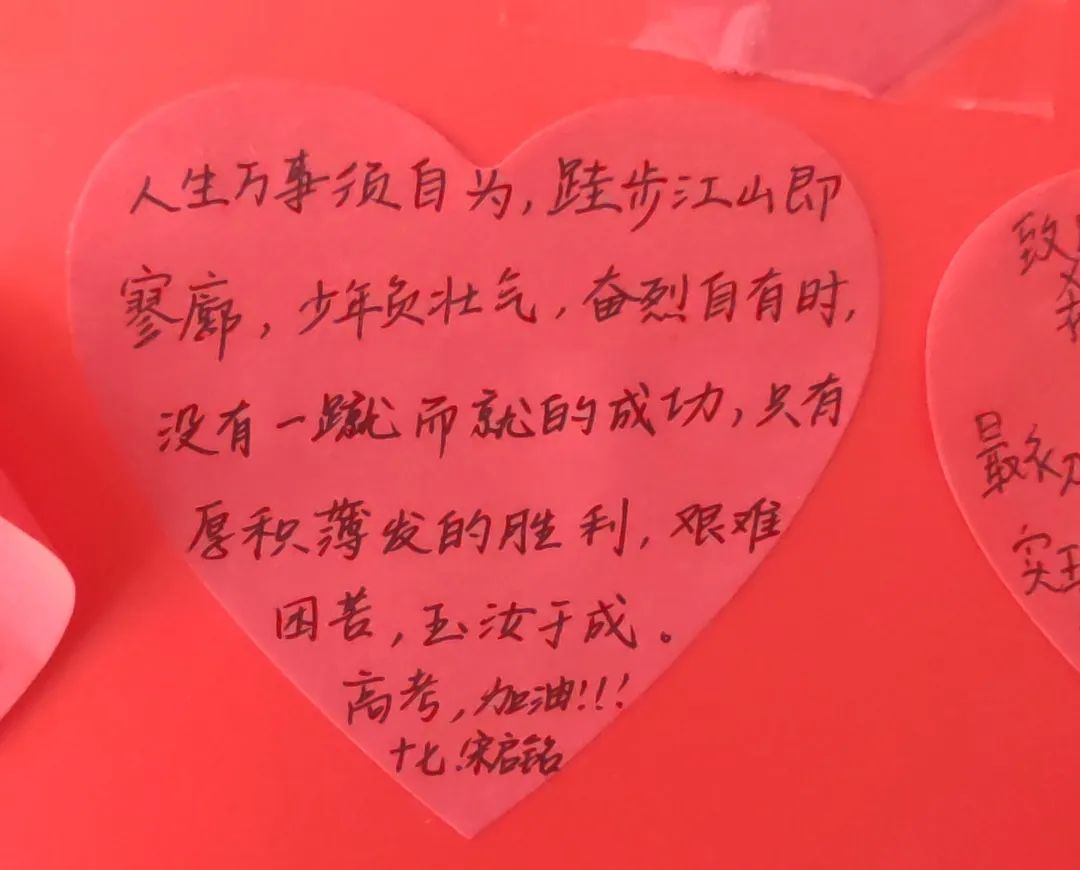 人生万事须自为,跬步江山即
寥廓,少年负壮气,奋烈自有时,
没有一蹴而就的成功,只有
厚积薄发的胜利,艰难
困苦,玉汝于成。
高考,加油!!!
十七.宋启铭
致
最初
实现